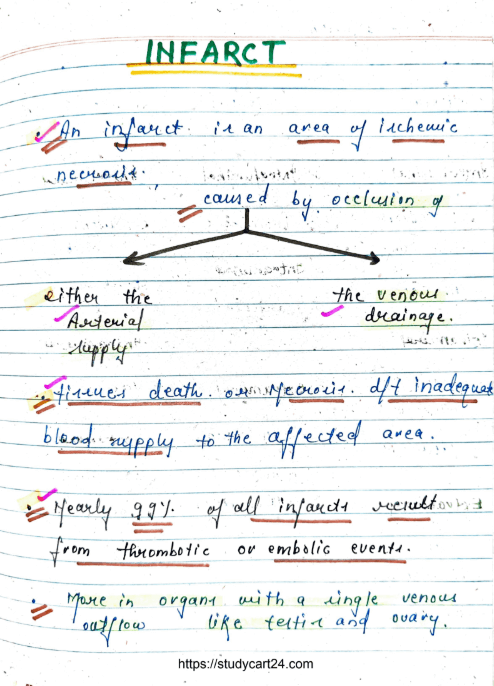 INFARCT
An infarct is an area of ischemic
necrosis.
caused by occlusion of
either the
Arterial
supply
the venous
drainage.
tissues death or Necrosis d/t inadequate
blood supply to the affected area.
Nearly 99% of all infarcts result
from thrombotic or embolic events.
More in organs with a single venous
outflow like testis and ovary.
https://studycart24.com